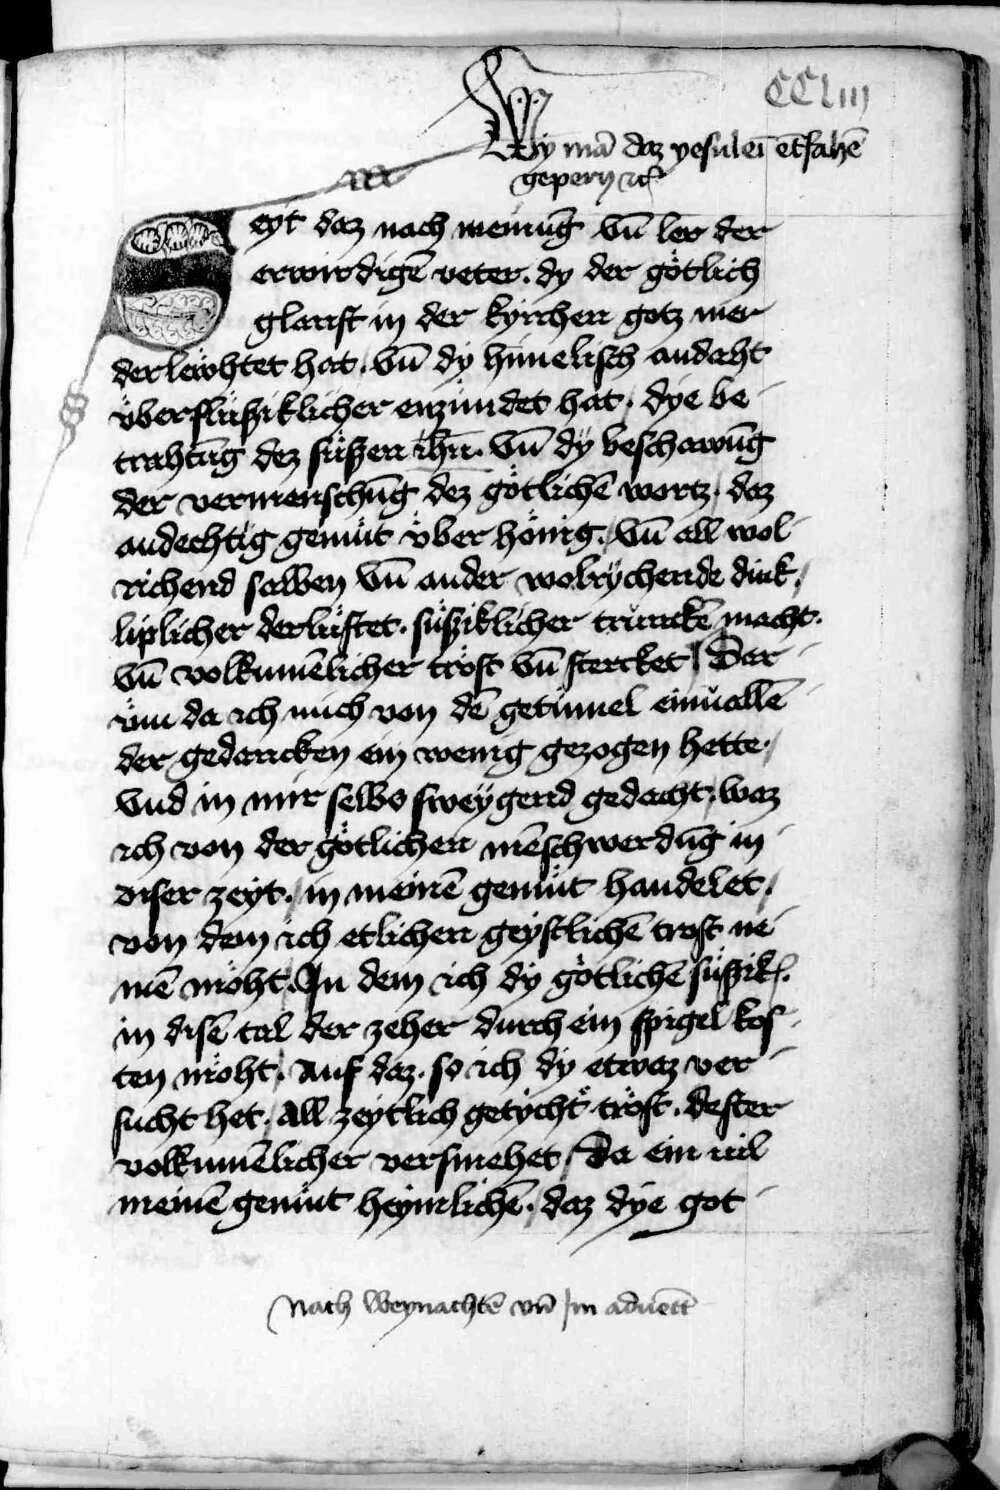 CCLIII
Wy mā daz yesulei ētfahē
gepery ꝛc̄
Seyt daz nach meinūg vn̄ ler der
erwirdigē veter. dy der götlich
glanst in der kyrchen gotz mer
derlewhtet hat. vn̄ dy himelisch andaht
v̈berflüßiklicher enzündet hat. dye be
trahtūg dez süßen ihū. vn̄ dy beschawūg
der vermenschūg dez götlichē wortz. daz
andechtig gemüt v̈ber hönig. vn̄ all wol
richend salben vn̄ ander wolrychende dink.
liplicher derlüstet. süßiklicher truncke macht.
vn̄ volkumēlicher tröst vn̄ stercket Dar
vm da ich mich von dē getümel einuallē
der gedancken ein wenig gezogen hette.
vnd in mir selbs sweygend gedacht. waz
ich von der götlichen mēschwerdūg in
diser zeyt. in meinē gemüt handelet.
von dem ich etlichen geystlichē trost ne
mē möht. In dem ich dy götlichē süßik.
in disē tal der zeher durch ein spigel kos
ten möht. Auf daz. so ich dy etwaz ver
sucht het. all zeytlich getycht tröst. dester
volkumēlicher versmehet Da ein uil
meinē gemüt heymlichē. daz dye got
Nach Weynachtē vn̄ Im aduētt